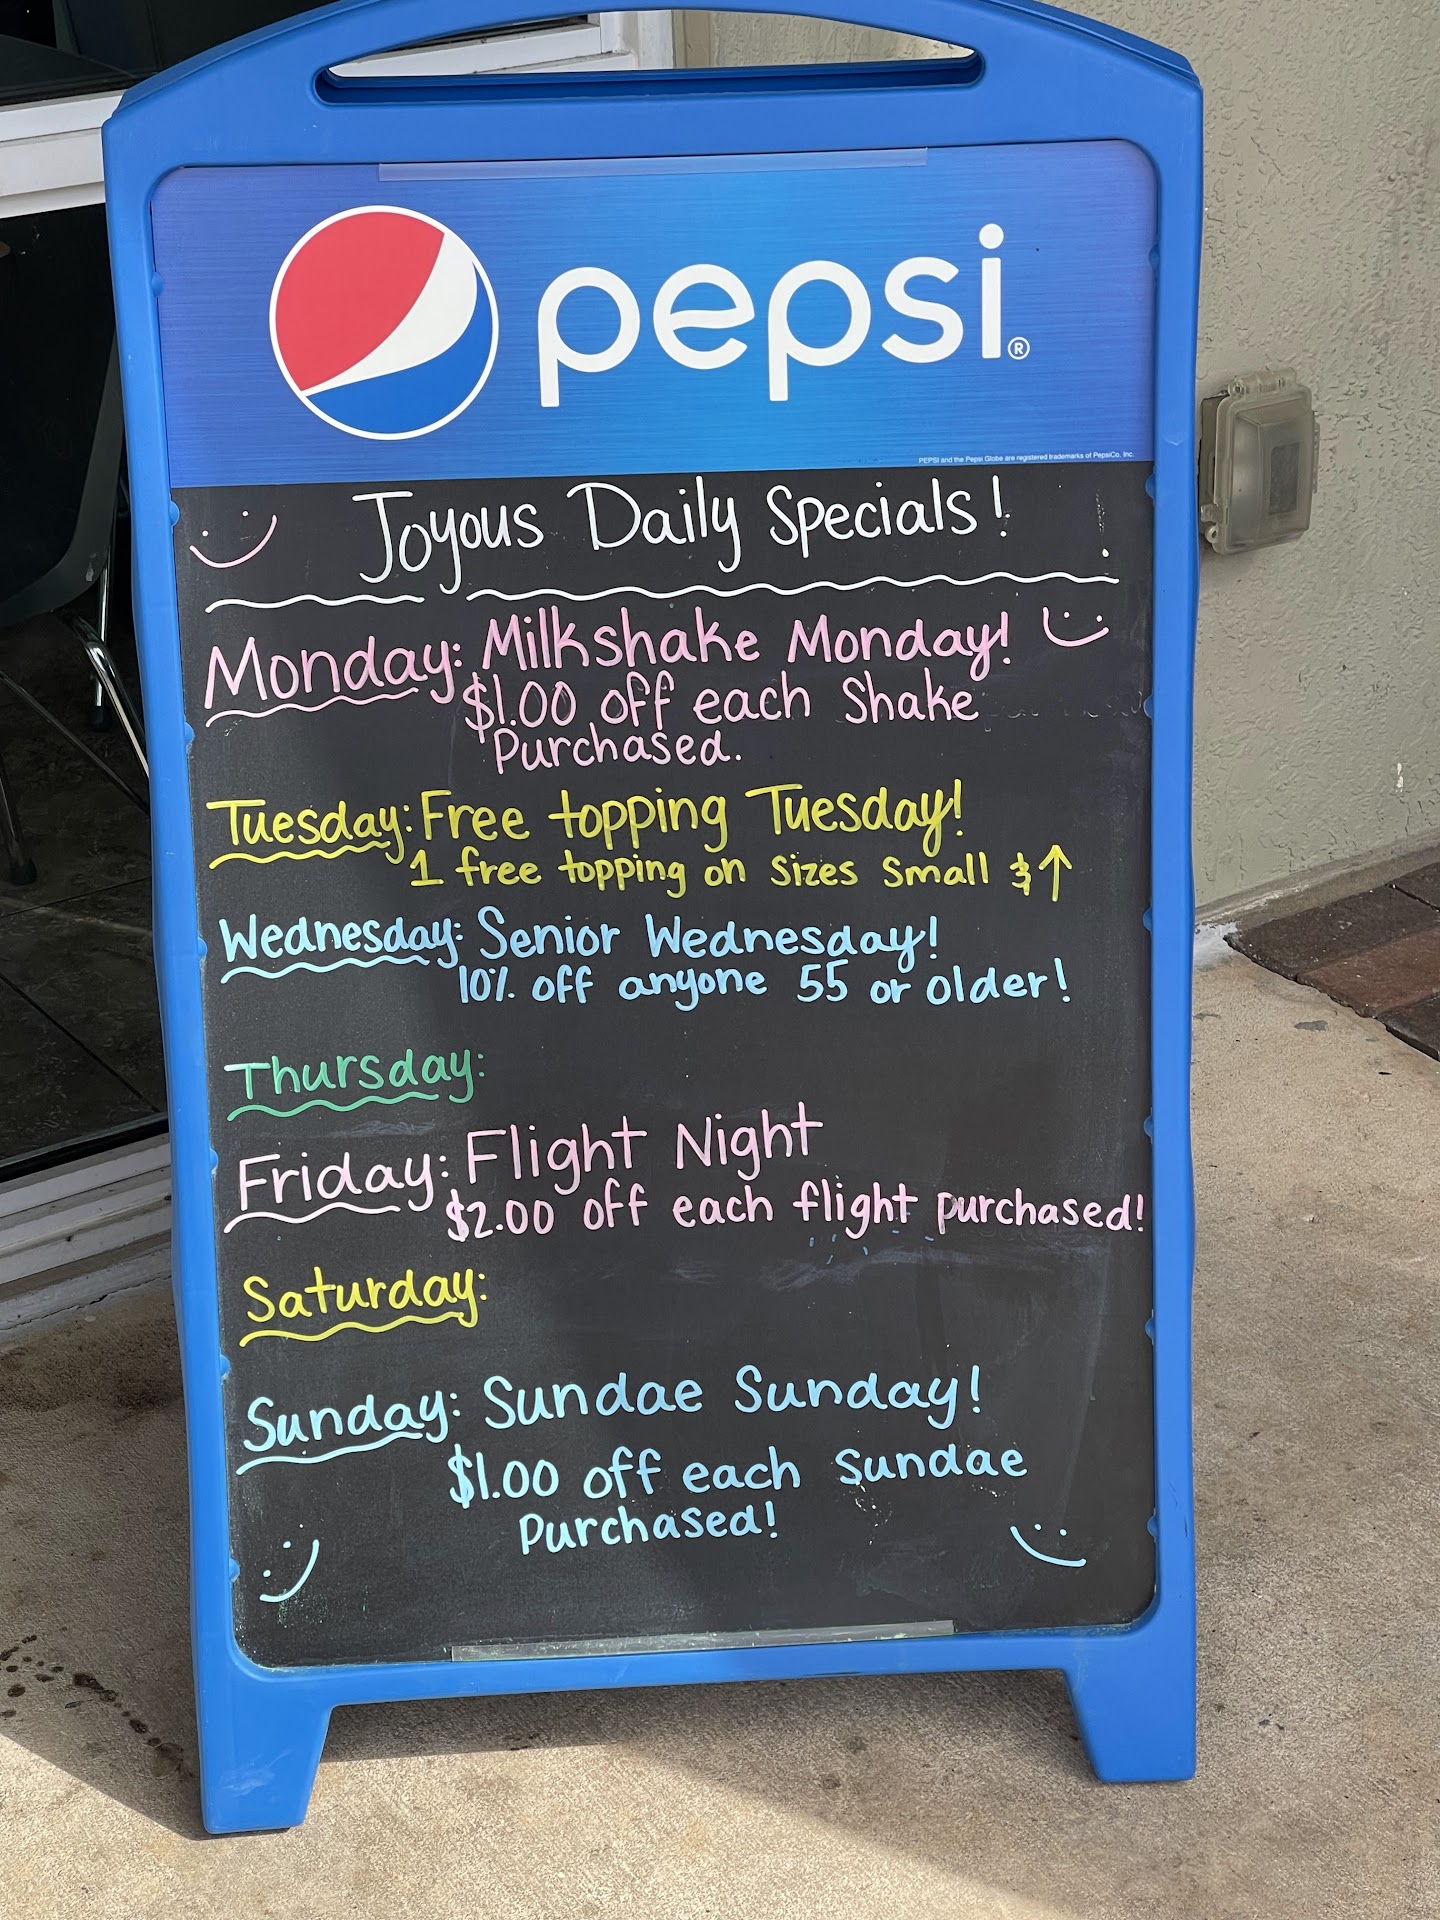 pepsi®
PEPSI and the Pepsi Globe are registered trademarks of PepsiCo, Inc.
Joyous Daily Specials!
Monday: Milkshake Monday!
$1.00 off each Shake
Purchased.
Tuesday: Free topping Tuesday!
1 free topping on sizes small & ↑
Wednesday: Senior Wednesday!
10% off anyone 55 or older!
Thursday:
Friday: Flight Night
$2.00 off each flight purchased!
Saturday:
Sunday: Sundae Sunday!
$1.00 off each Sundae
Purchased!